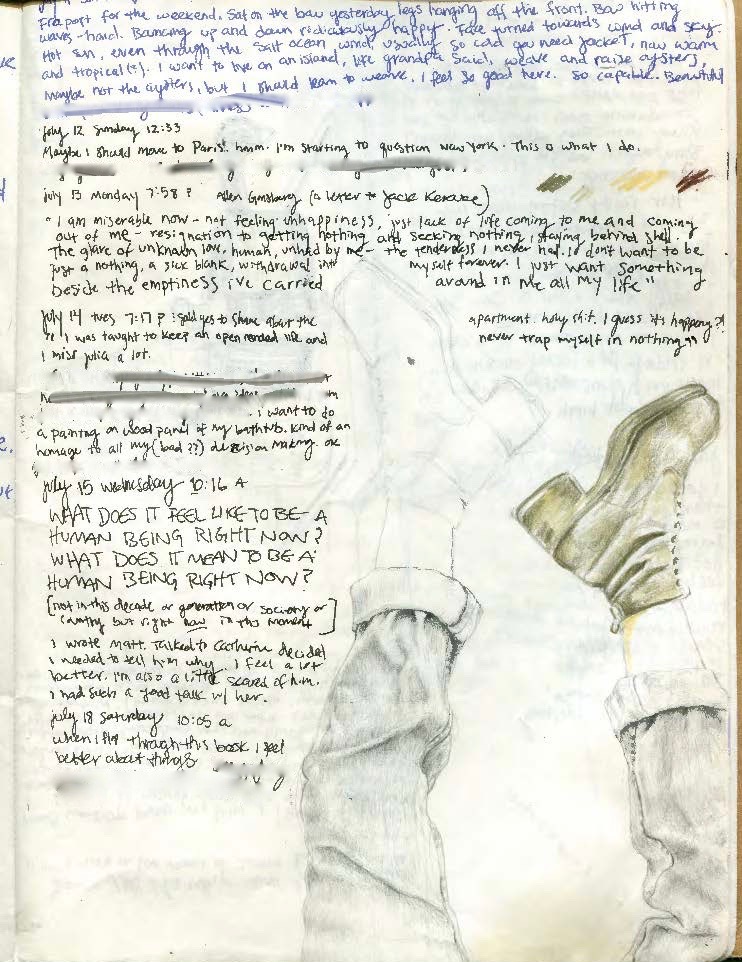 Freeport for the weekend. Sat on the bow yesterday legs hanging off the front. Bow hitting
waves - hard. Bouncing up and down ridiculously happy. Face turned towards wind and sky.
Hot sun, even through the salt ocean wind, usually so cold you need jacket, now warm
and tropical(?). I want to live on an island, like grandpa said, weave and raise oysters,
maybe not the oysters, but I should learn to weave. I feel so good here. So capable. Beautiful
july 12 sunday 12:33
Maybe I should move to Paris. hmm. I'm starting to question New York. This is what I do.
july 13 monday 7:58 ? Allen Ginsberg (a letter to Jack Kerouac)
"I am miserable now - not feeling unhappiness, just lack of life coming to me and coming
out of me - resignation to getting nothing and seeking nothing, staying behind shell.
The glare of unknown love, human, unhad by me - the tenderness I never had. I don't want to be
just a nothing, a sick blank, withdrawal into myself forever. I just want something
beside the emptiness i've carried around in me all my life"
july 14 tues 7:17 P i said yes to share about the apartment. holy shit. I guess it's happening?!
"I was taught to keep an open ended life and never trap myself in nothing"
I miss julia a lot.
. I want to do
a painting on wood panel of my bathtub. Kind of an
homage to all my (bad??) decision making. ok
july 15 wednesday 10:16 A
WHAT DOES IT FEEL LIKE TO BE A
HUMAN BEING RIGHT NOW?
WHAT DOES IT MEAN TO BE A
HUMAN BEING RIGHT NOW?
[not in this decade or generation or society or
country but right now in this moment]
I wrote Matt. Talked to Catherine decided
I needed to tell him why. I feel a lot
better. I'm also a little scared of him.
I had such a good talk w/ her.
july 18 saturday 10:05 a
when I flip through this book I feel
better about things